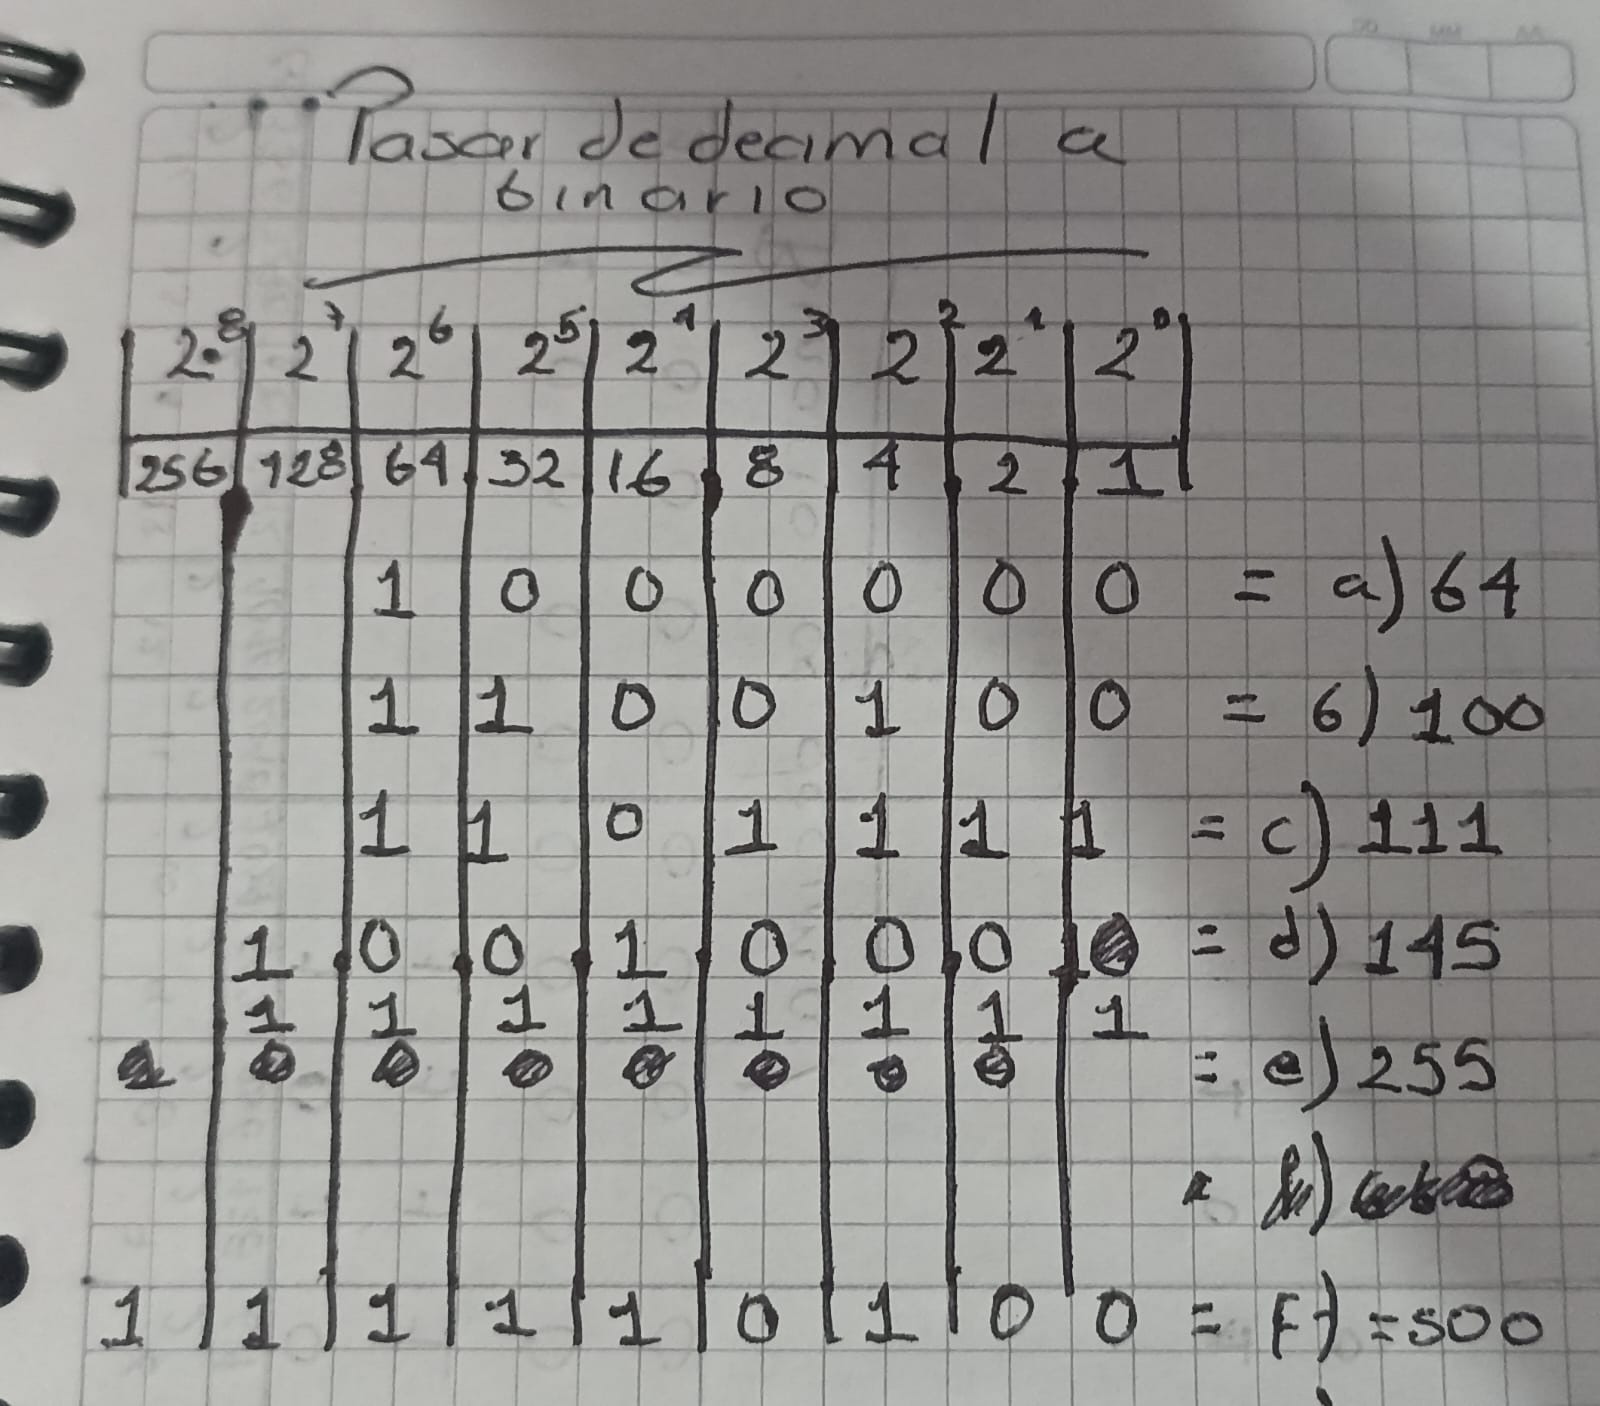 Pasar de decimal a
binario
2⁸ 2⁷ 2⁶ 2⁵ 2⁴ 2³ 2² 2¹ 2⁰
256 128 64 32 16 8 4 2 1
1 0 0 0 0 0 0 = a) 64
1 1 0 0 1 0 0 = b) 100
1 1 0 1 1 1 1 = c) 111
1 0 0 1 0 0 0 1 = d) 145
1 1 1 1 1 1 1 1
= e) 255
1 1 1 1 1 0 1 0 0 = F) = 500